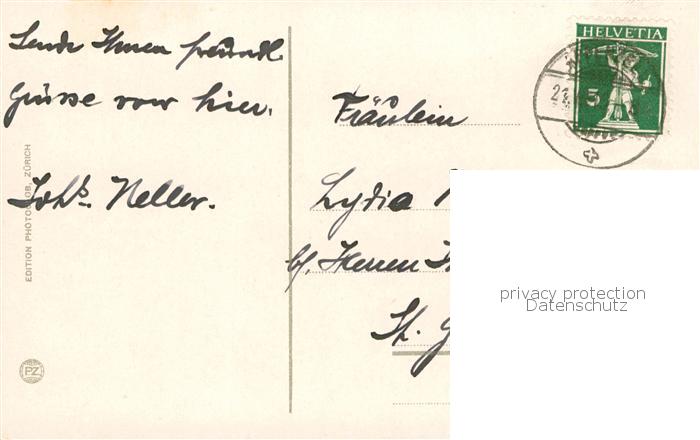 Sende Ihnen freundl.
Grüsse von hier.
Joh's. Keller.
EDITION PHOTOGLOB, ZÜRICH
PZ
HELVETIA
5
Fräulein
Lydia
b/. Herren
St. G
privacy protection
Datenschutz